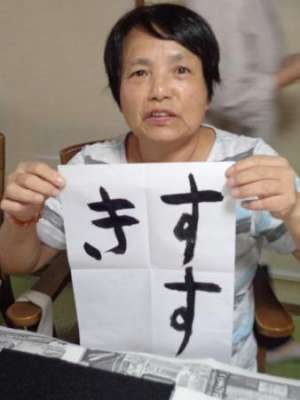 すす
き